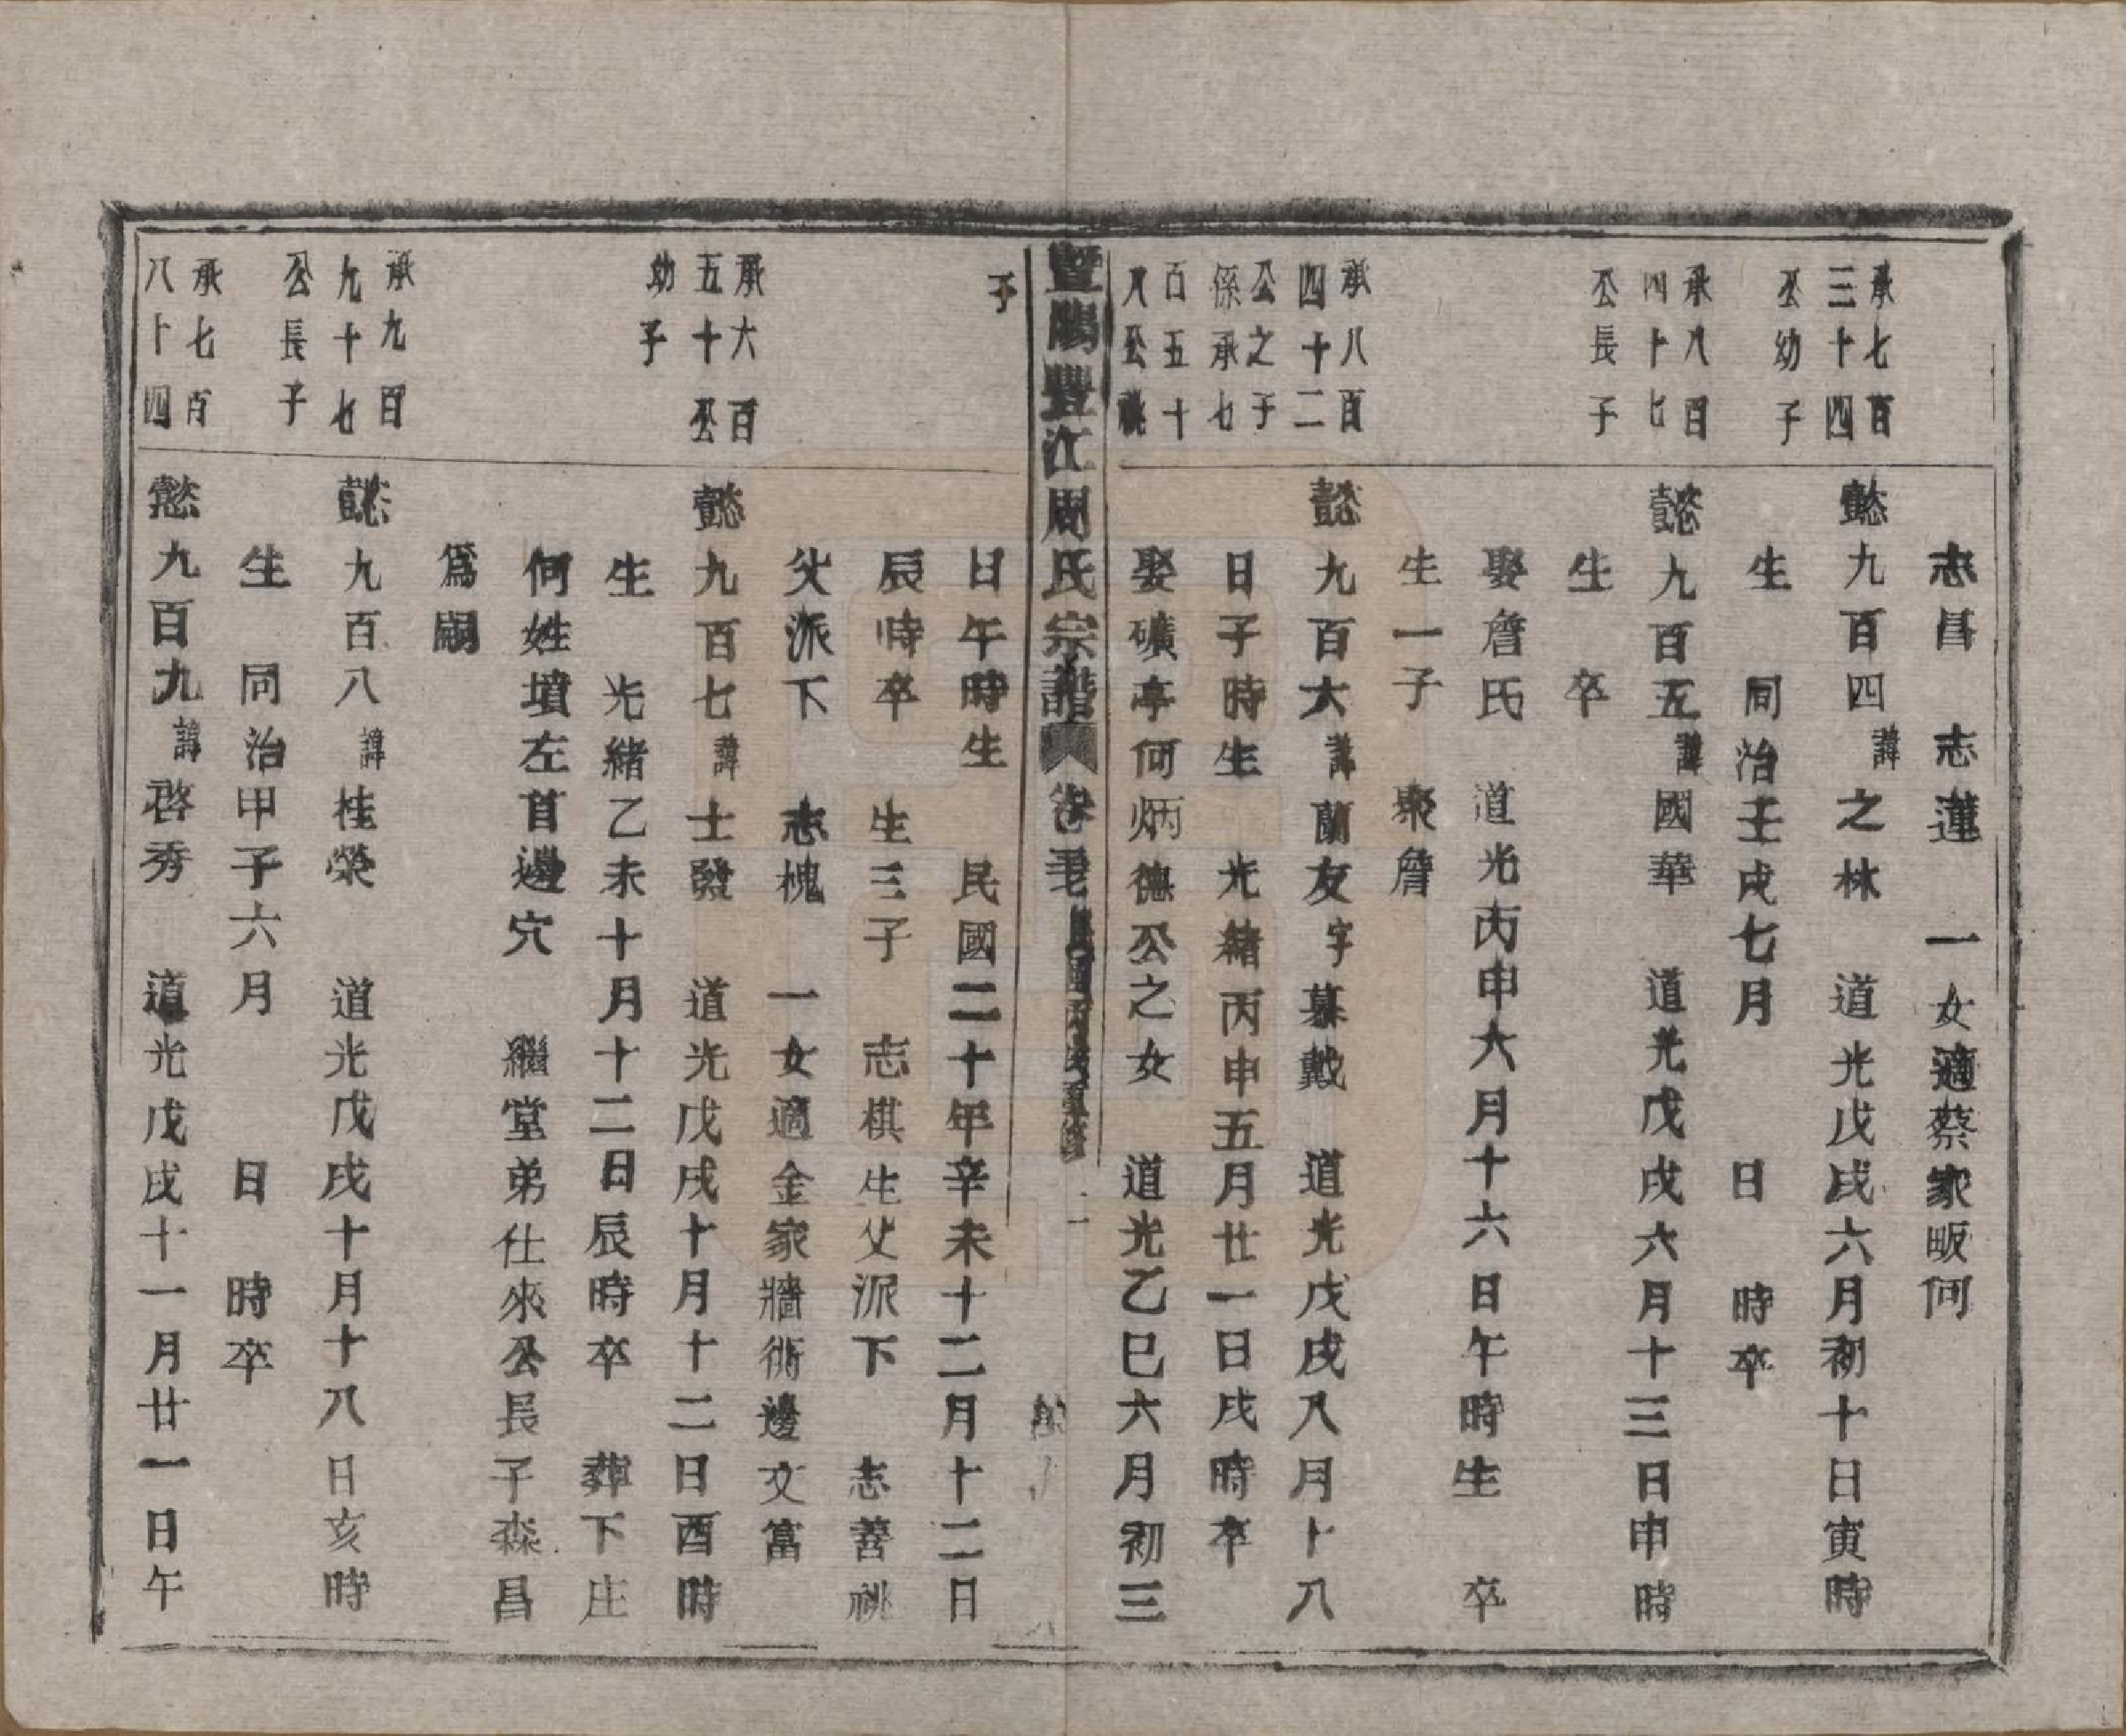 志昌　志蓮　一女適蔡家畈何
承七百
三十四
公幼子
懿九百四諱之林　道光戊戌六月初十日寅時
生　同治壬戌七月　　日　時卒
承八百
四十七
公長子
懿九百五諱國華　道光戊戌六月十三日申時
生　卒
娶詹氏　道光丙申六月十六日午時生　卒
生一子　聚詹
承八百
四十二
公之子
係承七
百五十
八公祧
懿九百六諱蘭友字慕戴　道光戊戌八月十八
日子時生　光緒丙申五月廿一日戌時卒
娶礦亭何炳德公之女　道光乙巳六月初三
暨陽豐江周氏宗譜　卷　民國　重修　一
子
日午時生　民國二十年辛未十二月十二日
辰時卒　生三子　志棋生父派下　志善祧
父派下　志槐　一女適金家牆衖邊文富
承六百
五十公
幼子
懿九百七諱士發　道光戊戌十月十二日酉時
生　光緒乙未十月十二日辰時卒　葬下庄
何姓墳左首邊穴　繼堂弟仕來公長子森昌
爲嗣
承九百
九十七
公長子
懿九百八諱桂榮　道光戊戌十月十八日亥時
生　同治甲子六月　　日　時卒
承七百
八十四
懿九百九諱啓秀　道光戊戌十一月廿一日午